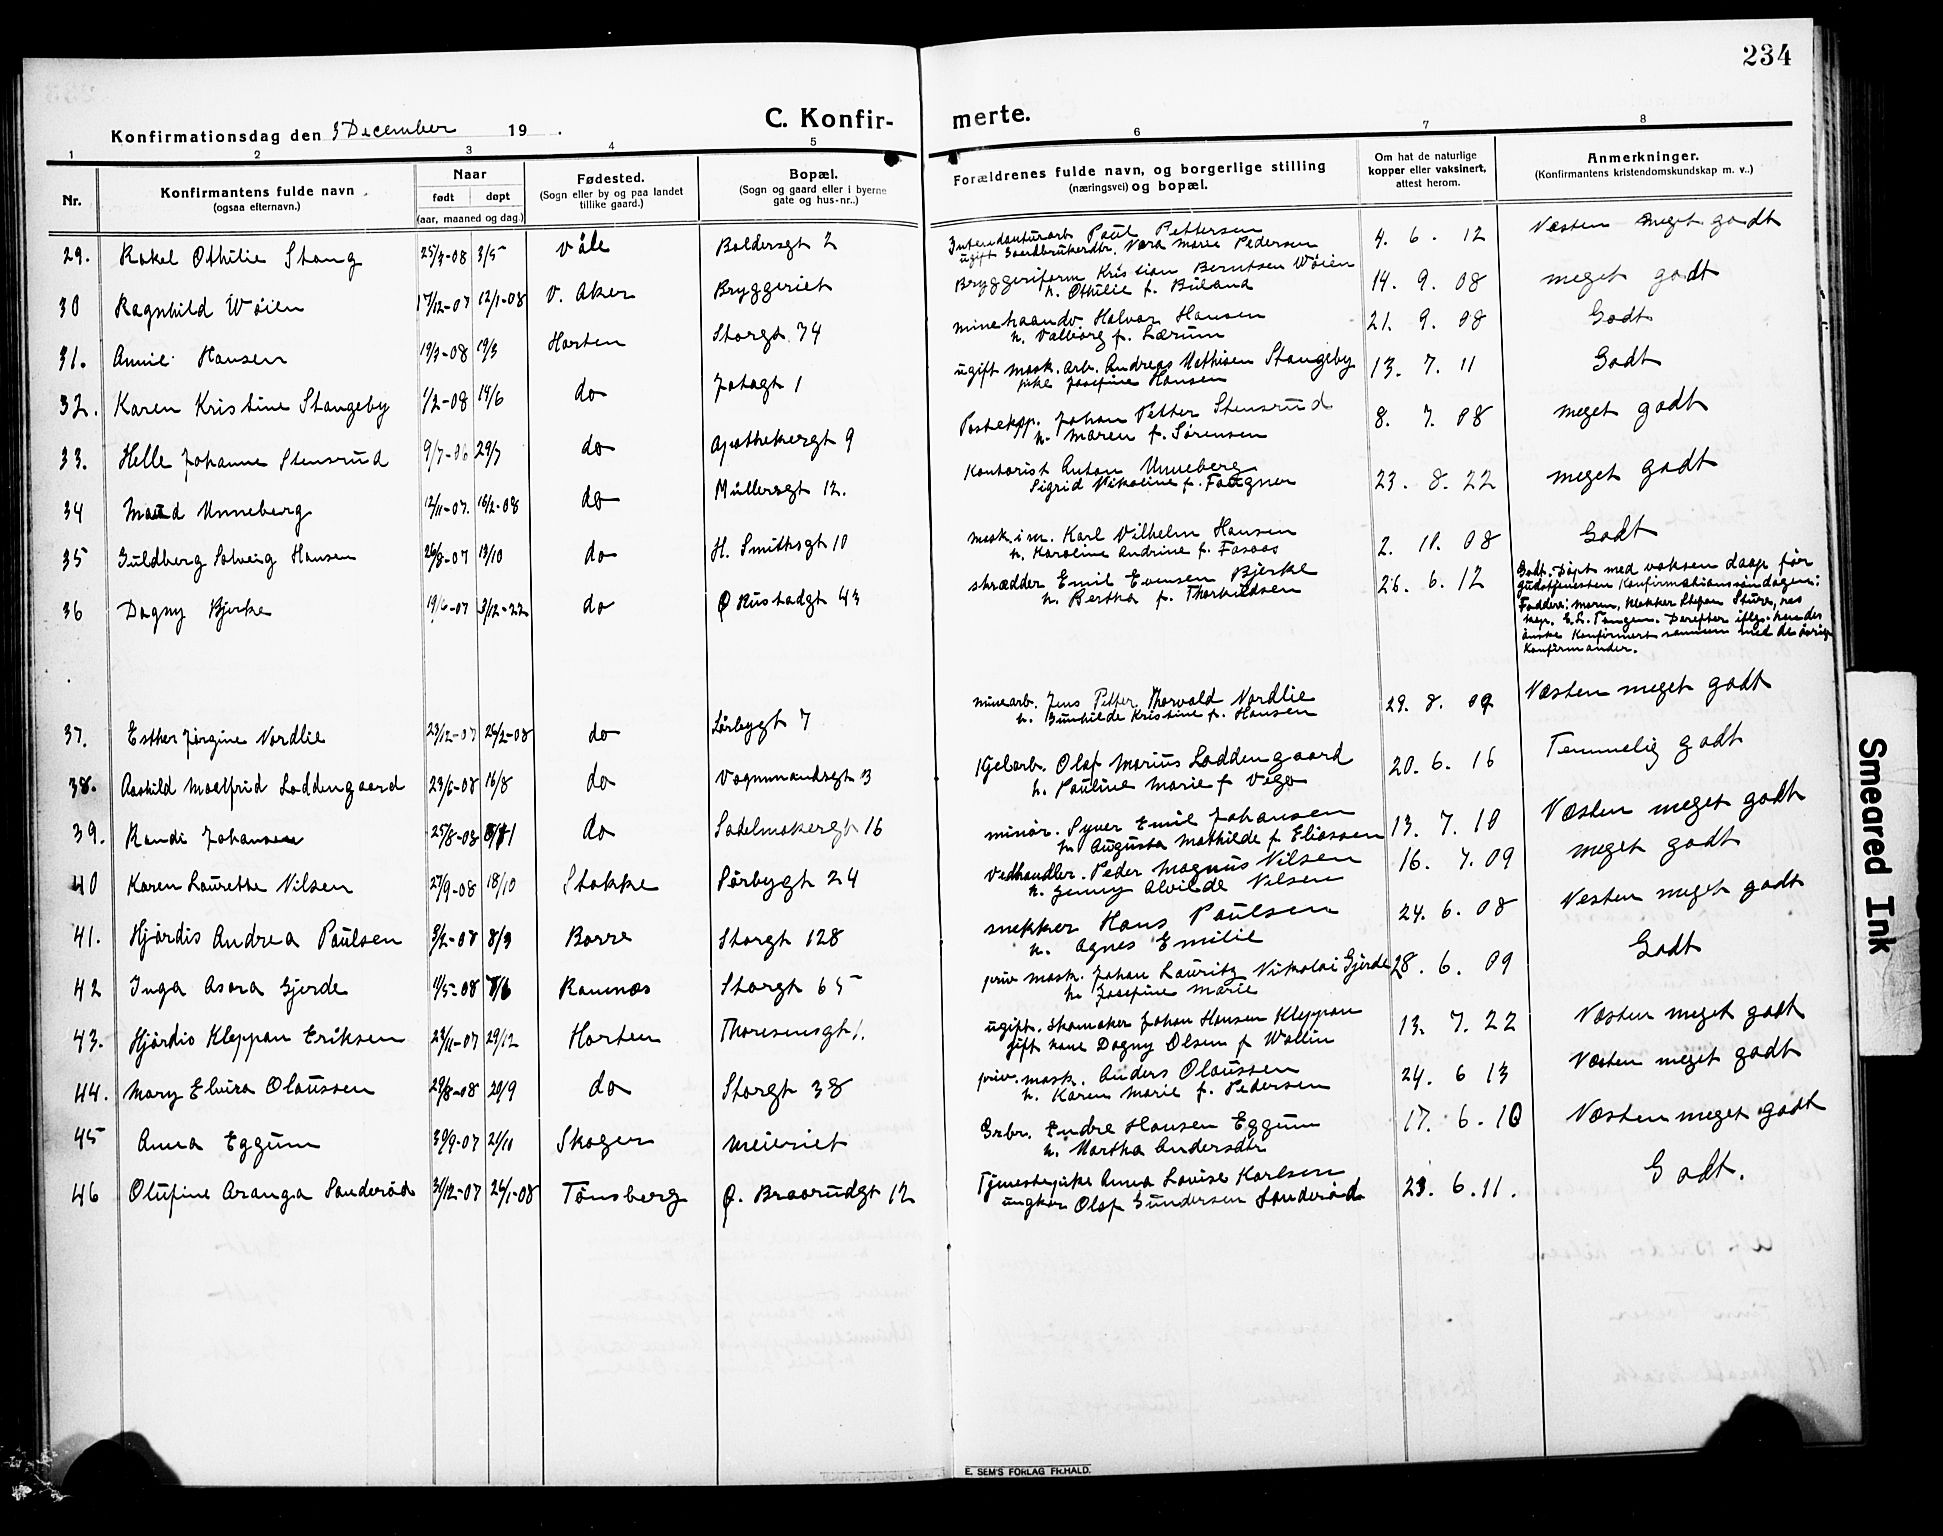 234
Konfirmationsdag den 3 December 19
C. Konfir- merte.
1 2 3 4 5 6 7 8
Nr.
Konfirmantens fulde navn
(ogsaa efternavn.)
Naar
født døpt
(aar, maaned og dag.)
Fødested.
(Sogn eller by og paa landet
tillike gaard.)
Bopæl.
(Sogn og gaard eller i byerne
gate og hus-nr..)
Forældrenes fulde navn, og borgerlige stilling
(næringsvei) og bopæl.
Om hat de naturlige
kopper eller vaksinert,
attest herom.
Anmerkninger.
(Konfirmantens kristendomskundskap m. v..)
29. Rakel Othilie Stang 25/3-08 3/5 Våle Baldersgt 2 Intendanturarb. Paul Pettersen 4. 6. 12 Næsten meget godt
ugift Gaardbrukerdtr. Nora Marie Pedersen
30 Ragnhild Wøien 17/12-07 12/1-08 V. Aker Bryggeriet Bryggeriform Kristian Berntsen Wøien 14. 9. 08 meget godt
h. Othilie f. Büland
31. Annie Hansen 19/3-08 19/3 Horten Storgt 34 minehaandv. Halvor Hansen 21. 9. 08 Godt
h. Valborg f. Lærum
32. Karen Kristine Stangeby 1/2-08 14/6 do Jotagt 1 ugift mask. arb. Andreas Mathisen Stangeby 13. 7. 11 Godt
pike Josefine Hansen
33. Helle Johanne Stensrud 9/7-06 29/7 do Apothekergt 9 Postekp. Johan Petter Stensrud 8. 7. 08 meget godt
h. Maren f. Sørensen
34 Maud Unneberg 12/11-07. 16/2-08 do Müllersgt 12. Kontorist Anton Unneberg 23. 8. 22 meget godt
Sigrid Nikoline f. Fougner
35 Guldborg Solveig Hansen 26/8-07 13/10 do H. Smithsgt 10 mask.im. Karl Vilhelm Hansen 2. 10. 08 Godt
h. Karoline Andrine f. Fosaas
36 Dagny Bjerke 19/6-07 3/12-22 do Q Rustadgt 43 skrædder Emil Evensen Bjerke 26. 6. 12 Godt. Døpt med voksen daap før
h. Bertha f. Thorkildsen
gudstjenesten Konfirmationssøndagen:
Faddere: moren, Klokker Stefan Sture, res
kap. E. L. Tangen. Derefter iflg. hendes
ønske Konfirmert sammen med de øvrige
Konfirmander.
37. Esther Jørgine Nordlie 23/12-07 26/2-08 do Lørbygt 7 minearb. Jens Petter Thorvald Nordlie 29. 8. 09 Næsten meget godt
h. Gunhilde Kristine f. Hansen
38. Aashild Maalfrid Loddengaard 23/6-08 16/8 do Vognmandsgt 13 Kjelarb. Olaf Marius Loddengaard 20. 6. 16 Temmelig godt
h. Pauline Marie f Vego
39. Randi Johansen 25/8-08 8/11 do Sadelmakergt 16 minør. Syver Emil Johansen 13. 7. 10 Næsten meget godt
h. Augusta Mathilde f. Eliassen
40 Karen Laurette Nilsen 27/9-08 18/10 Stokke Sørbygt 24 Vedhandler. Peder Magnus Nilsen 16. 7. 09 meget godt
h. Jenny Alvilde Nilsen
41. Hjørdis Andrea Paulsen 3/2-08 8/3 Borre Storgt 128 snekker Hans Paulsen 24. 6. 08 Næsten meget godt
h. Agnes Emilie
42 Inga Asora Gjerde 11/5-08 7/6 Ramnæs Storgt 65 priv mask. Johan Lauritz Nikolai Gjerde 28. 6. 09 Godt
h. Josefine Marie
43. Hjørdis Kleppan Eriksen 23/11-07 29/12 Horten Thoresensgt 1. ugift. Skomaker Johan Hansen Kleppan 13. 7. 22 Næsten meget godt
gift kone Dagny Olsen f. Wallin
44. Mary Elvira Olaussen 29/8-08 20/9 do Storgt 38 priv. mask. Anders Olaussen 24. 6 13 Næsten meget godt
h. Karen Marie f. Pedersen
45 Anna Eggum 30/9-07 21/11 Skoger meieriet Grbr. Endre Hansen Eggum 17. 6. 10 Næsten meget godt
h. Martha Andersdtr
46 Olufine Aranga Sanderød 31/12-07 26/1-08 Tønsberg Q. Braarudgt 12 Tjenestepike Anna Lovise Karlsen 23. 6. 11. Godt.
ungkar Olaf Gundersen Sanderød
E. SEM'S FORLAG FR.HALD.
Smeared Ink